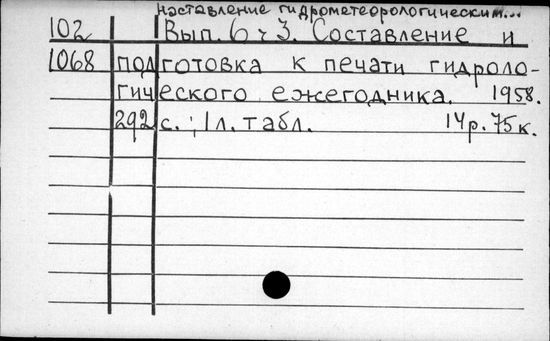 наставление гидрометеорологическим...
102 Вып. 6 ч 3. Составление и
1068 подготовка к печати гидроло-
гического ежегодника. 1958.
292 с.; 1л. табл. 14р. 75к.